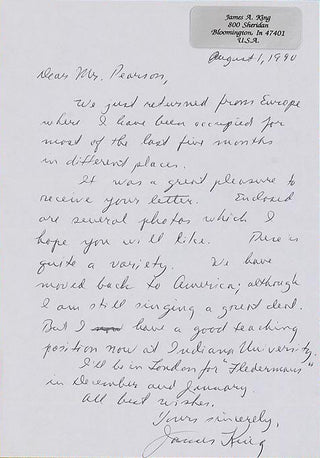 James A. King
800 Sheridan
Bloomington, In 47401
U.S.A.
August 1, 1990
Dear Mr. Pearson,
We just returned from Europe
where I have been occupied for
most of the last five months
in different places.
It was a great pleasure to
receive your letter. Enclosed
are several photos which I
hope you will like. There is
quite a variety. We have
moved back to America, although
I am still singing a great deal.
But I have a good teaching
position now at Indiana University.
I'll be in London for "Fledermaus"
in December and January.
All best wishes.
Yours sincerely,
James King